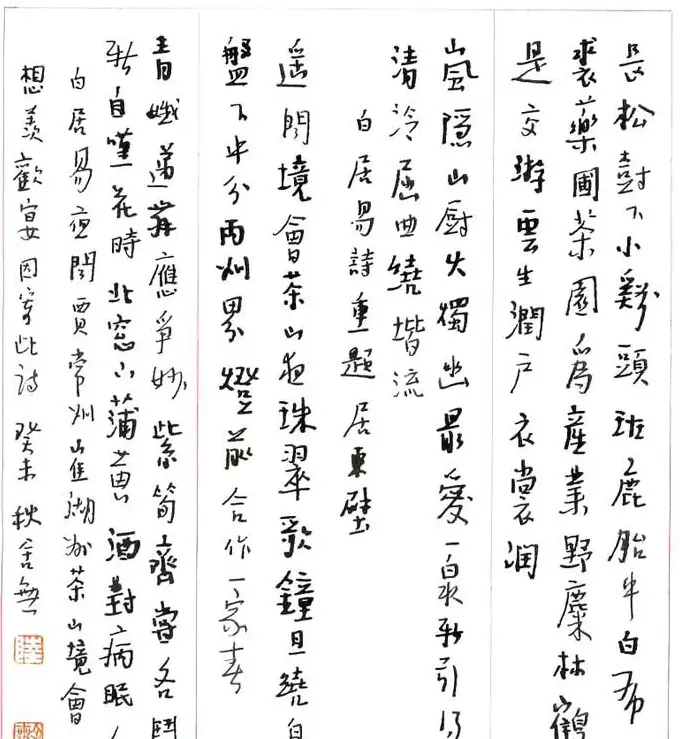 長松樹下小谿頭班鹿胎巾白布
裘藥圃茶園為產業野麋林鶴
是交遊雲生澗戶衣裳潤
嵐隱山廚火燭幽最愛一泉新引得
清泠屈曲繞堦流
白居易詩重題居東壁
遥聞境會茶山夜珠翠歌鐘且繞
盤下中分兩州界燈前合作一家春
青娥遞舞應爭妙紫筍齊嘗各鬥
新自嘆花時北窓下蒲黃酒對病眠人
白居易夜聞賈常州崔湖州茶山境會
想羨歡宴因寄此詩癸未秋舍無